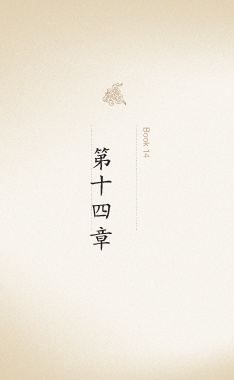 Book 14
第十四章